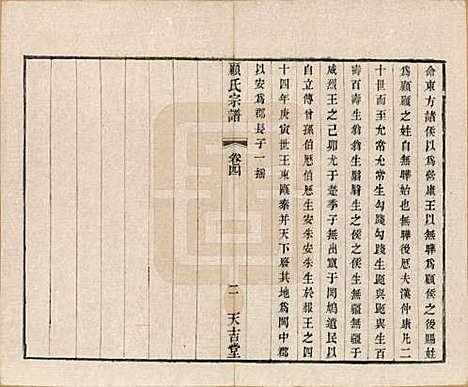 命東方諸侯以為營康王以無驊為顧侯之後賜姓
為顧顧之姓自無驊始也無驊後歷夫漢仲康凡二
十世而至允常允常生勾踐勾踐生鼫與鼫與生百
壽百壽生翁翁生翳翳生之侯之侯生無疆於
咸烈王之己卯尤于楚季子無出竄于閩鳩遺民以
自立傳曾孫伯歷伯歷生安朱安朱生於赧王之四
十四年庚寅世王東甌秦并天下廢其地為閩中郡
以安為郡長子一搖
顧氏宗譜
卷四
二
天吉堂